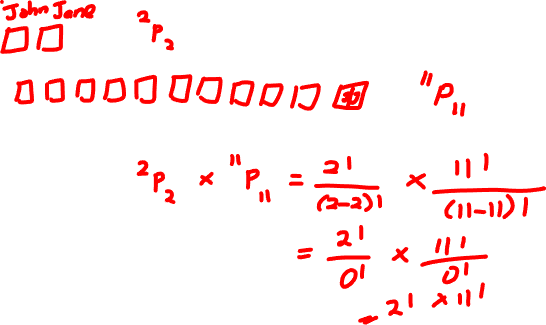 John Jane
²P₂
¹¹P₁₁
²P₂ × ¹¹P₁₁ = 2!/(2-2)! × 11!/(11-11)!
= 2!/0! × 11!/0!
= 2! × 11!